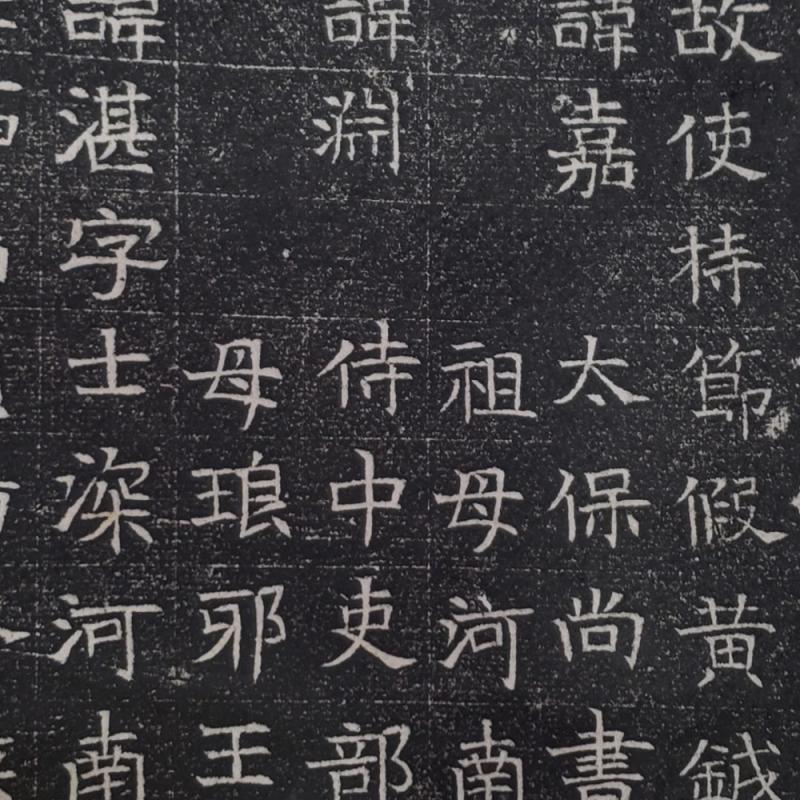 故使持節假黄鉞
諱嘉太保尚書
祖母河南
諱淵侍中吏部
母琅邪王
諱湛字士深河南